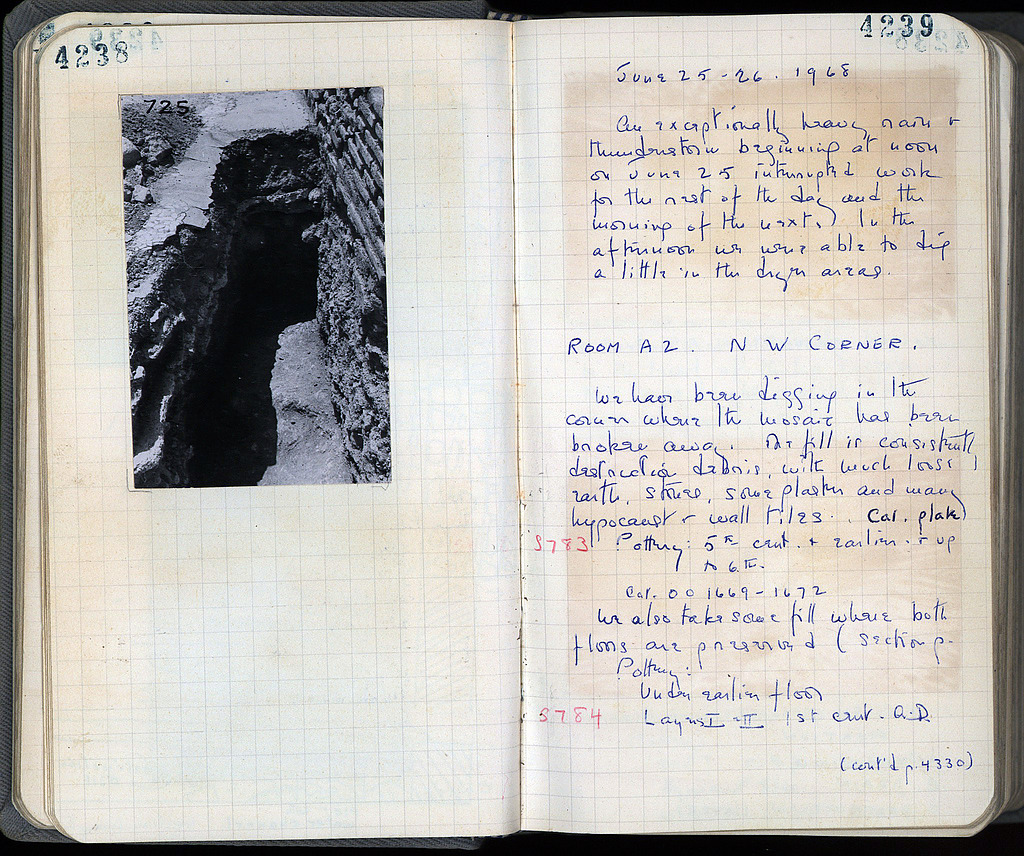 4238
725
4239
June 25-26. 1968
An exceptionally heavy rain +
thunderstorm beginning at noon
on June 25 interrupted work
for the rest of the day and the
morning of the next. In the
afternoon we were able to dig
a little in the dryer areas.
ROOM A2. N W CORNER.
We have been digging in the
corner where the mosaic has been
broken away. The fill is consistently
destruction debris, with much loose
earth, stones, some plaster and many
hypocaust + wall tiles. Cat. plate
S783 Pottery: 5th cent. + earlier. + up
to 6th.
Cat. 00 1669-1672
We also take some fill where both
floors are preserved (section p.
Pottery:
Under earlier floor
S784 Layers I-II 1st cent. A.D.
(cont'd p. 4330)